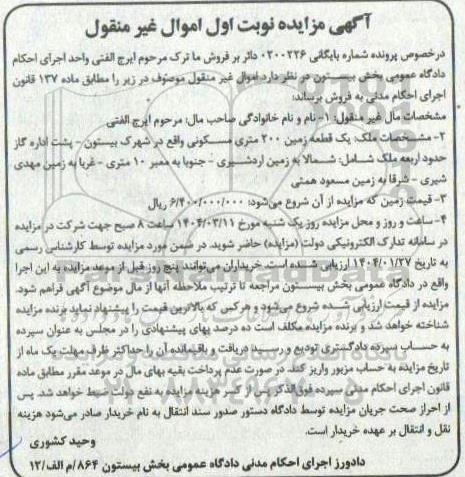 آگهی مزایده نوبت اول اموال غیر منقول
درخصوص پرونده شماره بایگانی ۰۲۰۰۲۲۶ دائر بر فروش ما ترک مرحوم ایرج الفتی واحد اجرای احکام
دادگاه عمومی بخش بیستون در نظر دارد اموال غیر منقول موصوف در زیر را مطابق ماده ۱۳۷ قانون
اجرای احکام مدنی به فروش برساند:
مشخصات مال غیر منقول: ۱- نام و نام خانوادگی صاحب مال: مرحوم ایرج الفتی
۲- مشخصات ملک: یک قطعه زمین ۲۰۰ متری مسکونی واقع در شهرک بیستون - پشت اداره گاز
حدود اربعه ملک شامل: شمالا به زمین اردشیری - جنوبا به معبر ۱۰ متری - غربا به زمین مهدی
شیری - شرقا به زمین مسعود همتی
۳- قیمت زمین که مزایده از آن شروع می‌شود: ۶/۴۰۰/۰۰۰/۰۰۰ ریال
۴- ساعت و روز و محل مزایده روز یک شنبه مورخ ۱۴۰۴/۰۳/۱۱ ساعت ۸ صبح جهت شرکت در مزایده
در سامانه تدارک الکترونیکی دولت (مزایده) حاضر شوید. در ضمن مورد مزایده توسط کارشناس رسمی
به تاریخ ۱۴۰۴/۰۱/۲۷ ارزیابی شده است. خریداران می‌توانند پنج روز قبل از موعد مزایده به این اجرا
واقع در دادگاه عمومی بخش بیستون مراجعه تا ترتیب ملاحظه آنها از مال موضوع آگهی فراهم شود.
مزایده از قیمت ارزیابی شده شروع می‌شود و هرکس که بالاترین قیمت را پیشنهاد نماید برنده مزایده
شناخته خواهد شد و برنده مزایده مکلف است ده درصد بهای پیشنهادی را در مجلس به عنوان سپرده
به حساب سپرده دادگستری تودیع و رسید دریافت و باقیمانده آن را حداکثر ظرف مهلت یک ماه از
تاریخ مزایده به حساب مزبور واریز کند. در صورت عدم پرداخت بقیه بهای مال در موعد مقرر مطابق ماده
قانون اجرای احکام مدنی سپرده فوق‌الذکر پس از کسر هزینه مزایده به نفع دولت ضبط خواهد شد. پس
از احراز صحت جریان مزایده توسط دادگاه دستور صدور سند انتقال به نام خریدار صادر می‌شود هزینه
نقل و انتقال بر عهده خریدار است.
وحید کشوری
دادورز اجرای احکام مدنی دادگاه عمومی بخش بیستون ۸۶۴/م الف/۱۲